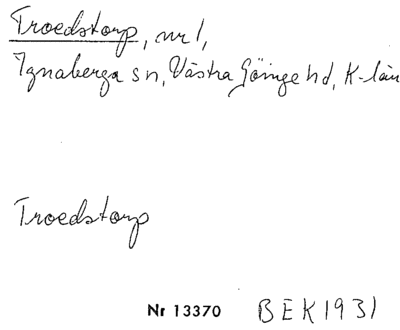 Troedstorp, nr 1,
Ignaberga sn, Västra Göinge hd, K-län
Troedstorp
Nr 13370 BEK 1931